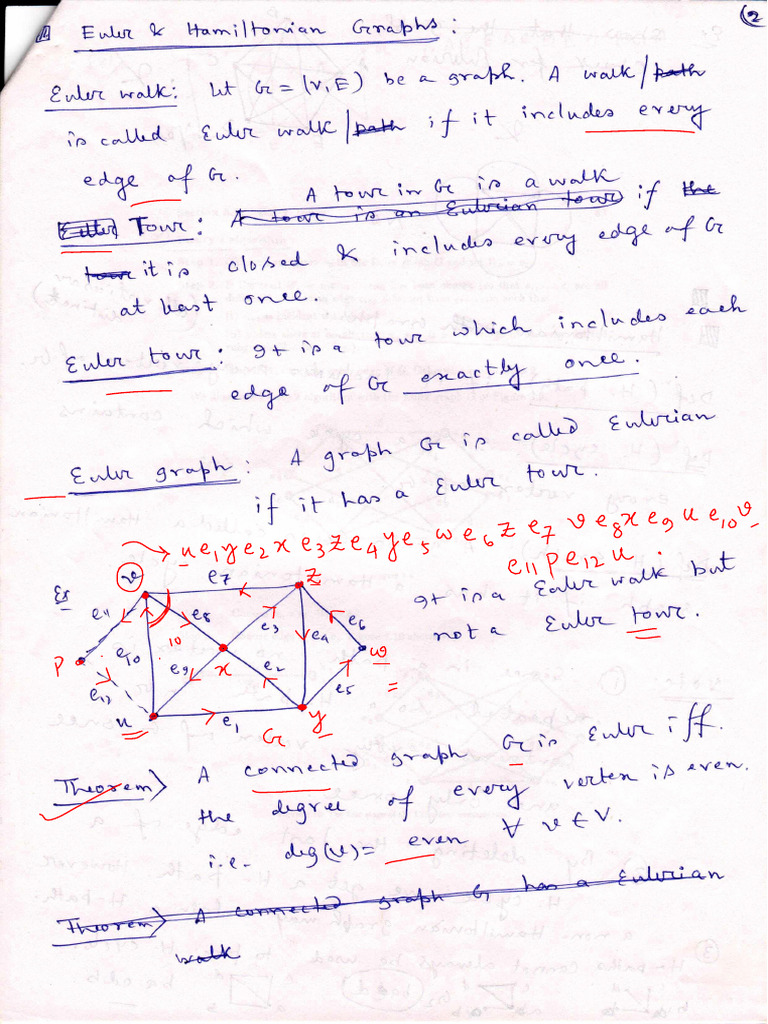 (2
Euler & Hamiltonian Graphs:
Euler walk: Let G = (V, E) be a graph. A walk/path
is called Euler walk/path if it includes every
edge of G.
A tour in G is a walk
Euler Tour: A tour is an Eulerian tour if the
tour it is closed & includes every edge of G
at least once.
Euler tour: It is a tour which includes each
edge of G exactly once.
Euler graph: A graph G is called Eulerian
if it has a Euler tour.
u e1 y e2 x e3 z e4 y e5 w e6 z e7 v e8 x e9 u e10 v
e11 p e12 u.
Ex
It is a Euler walk but
not a Euler tour.
v e7 z
e11 e8 e3 e4 e6
p e10 10 e9 x e2 w
e12 e5
u e1 y
G
Theorem> A connected graph G is Euler iff.
the degree of every vertex is even.
i.e. deg(v) = even ∀ v ∈ V.
Theorem> A connected graph G has a Eulerian
walk